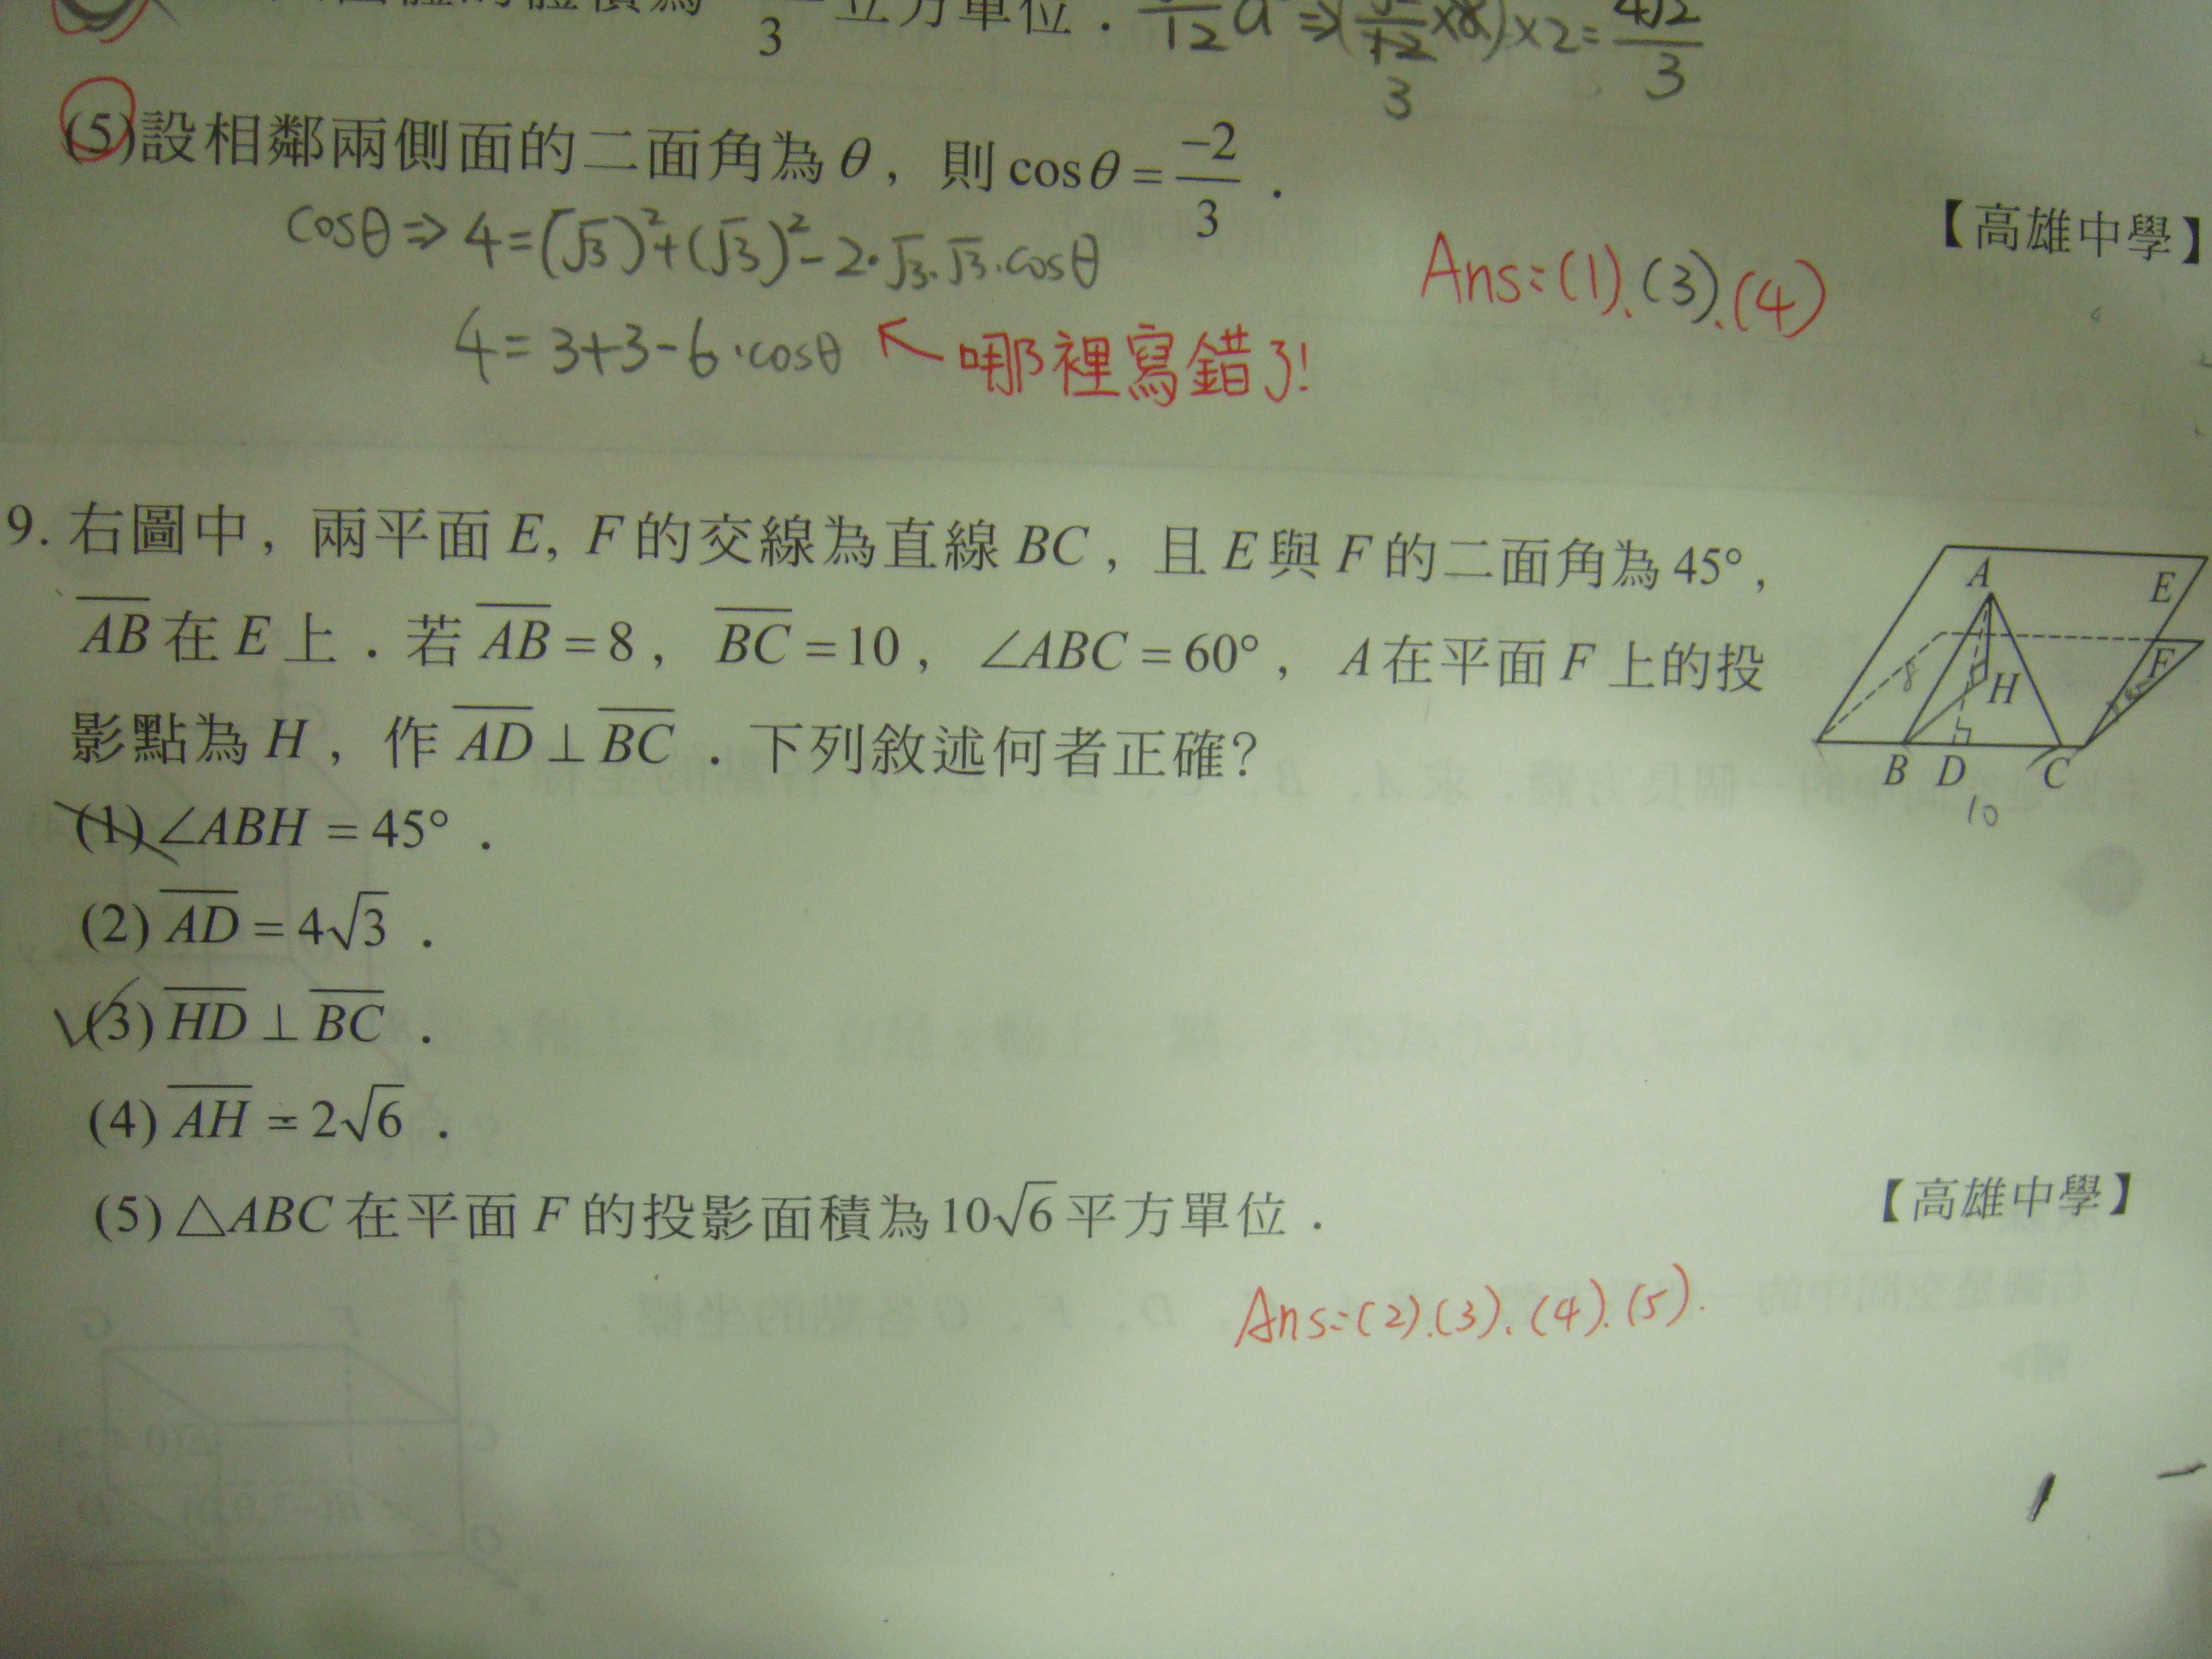 體的體積為 3 立方單位.
12 a ⇒( 12 ×8)×2= 4√2
3 3
(5)設相鄰兩側面的二面角為θ, 則cosθ= -2/3 .
【高雄中學】
cosθ⇒ 4=(√3)²+(√3)²-2·√3·√3·cosθ
Ans=(1)、(3)、(4)
4=3+3-6·cosθ ↖哪裡寫錯了!
9. 右圖中, 兩平面E, F的交線為直線BC, 且E與F的二面角為45°,
AB在E上. 若AB=8, BC=10, ∠ABC=60°, A在平面F上的投
影點為H, 作AD⊥BC. 下列敘述何者正確?
A
E
F
8
H
B D C
10
(1)∠ABH=45°.
(2)AD=4√3.
(3)HD⊥BC.
(4)AH=2√6.
(5)△ABC在平面F的投影面積為10√6平方單位.
【高雄中學】
Ans=(2)、(3)、(4)、(5).